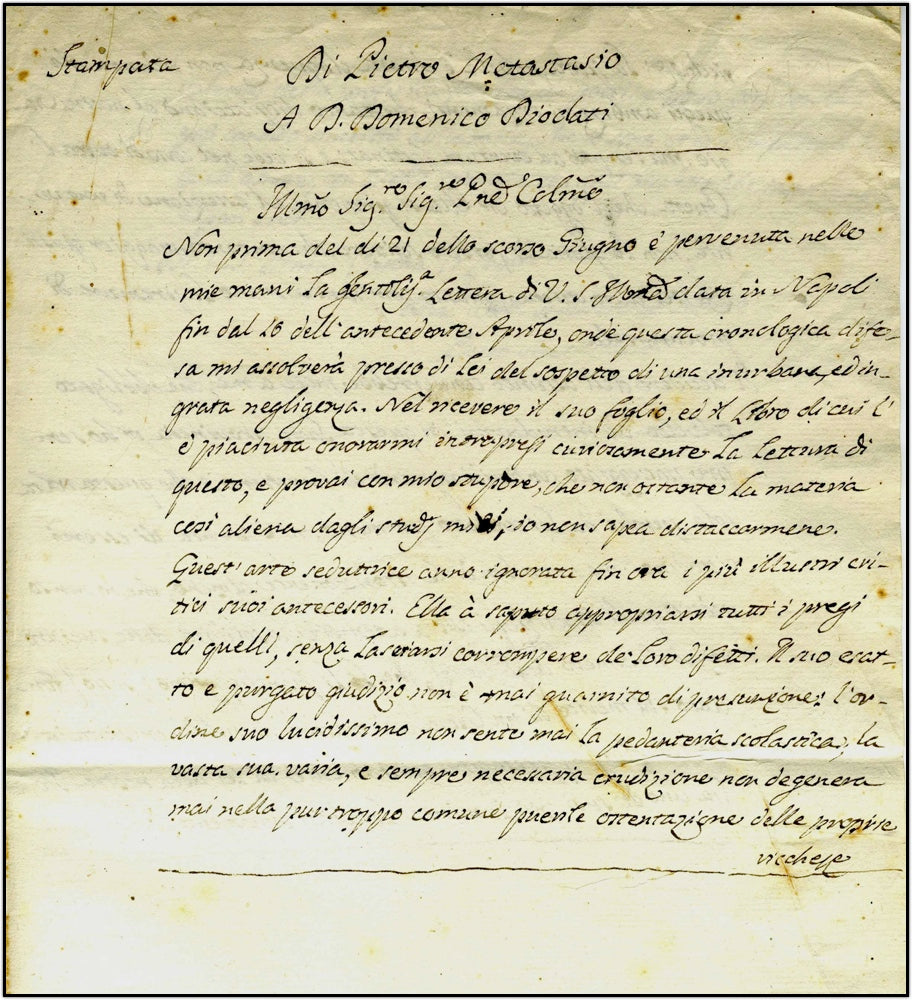 Stampata
Di Pietro Metastasio
A D. Domenico Diodati
Illmõ Sig.ro Sig.ro Pñe Colmõ
Non prima del dì 21 dello scorso Giugno è pervenuta nelle
mie mani la gentiliss.a Lettera di V. S. Illma data in Napoli
fin dal 16 dell'antecedente Aprile, onde questa cronologica dife-
sa mi assolverà presso di Lei del sospetto di una inurbana, ed in-
grata negligenza. Nel ricevere il suo foglio, ed il Libro di cui l'
è piaciuta onorarmi intrapresi curiosamente la Lettura di
questo, e provai con mio stupore, che non ostante la materia
così aliena dagli studj miei, io non sapea distaccarmene.
Quest'arte seduttrice anno ignorata fin ora i più illustri cri-
tici suoi antecessori. Ella à saputo appropriarsi tutti i pregi
di quelli, senza Lasciarsi corrompere de' Loro difetti. Il suo esat-
to e purgato giudizio non è mai guarnito di presunzione: l'or-
dine suo lucidissimo non sente mai la pedanteria scolastica; la
vasta sua varia, e sempre necessaria erudizione non degenera
mai nella pur troppo comune puerile ostentazione delle proprie
ricchezze